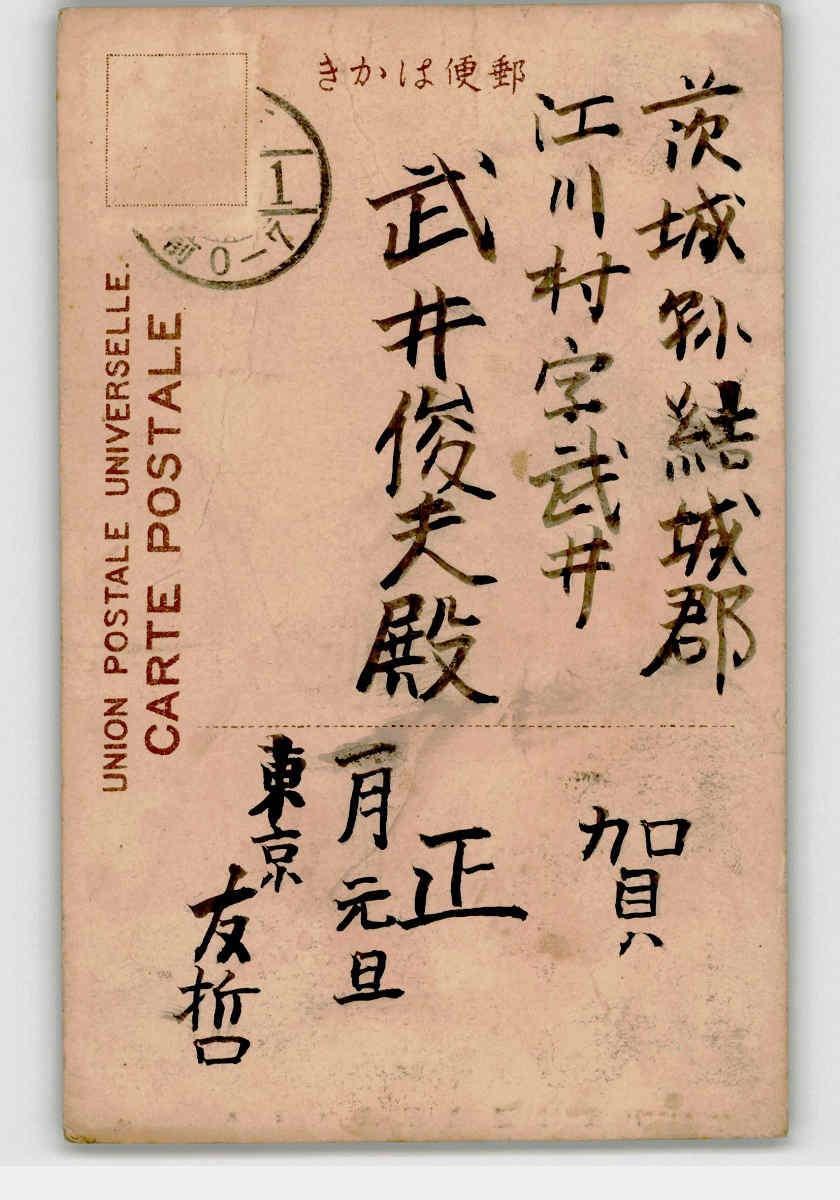 きかはは便郵
茨城縣結城郡
江川村字武井
武井俊夫殿
賀
正
一月元旦
東京
友哲
UNION POSTALE UNIVERSELLE.
CARTE POSTALE
1
前0-7